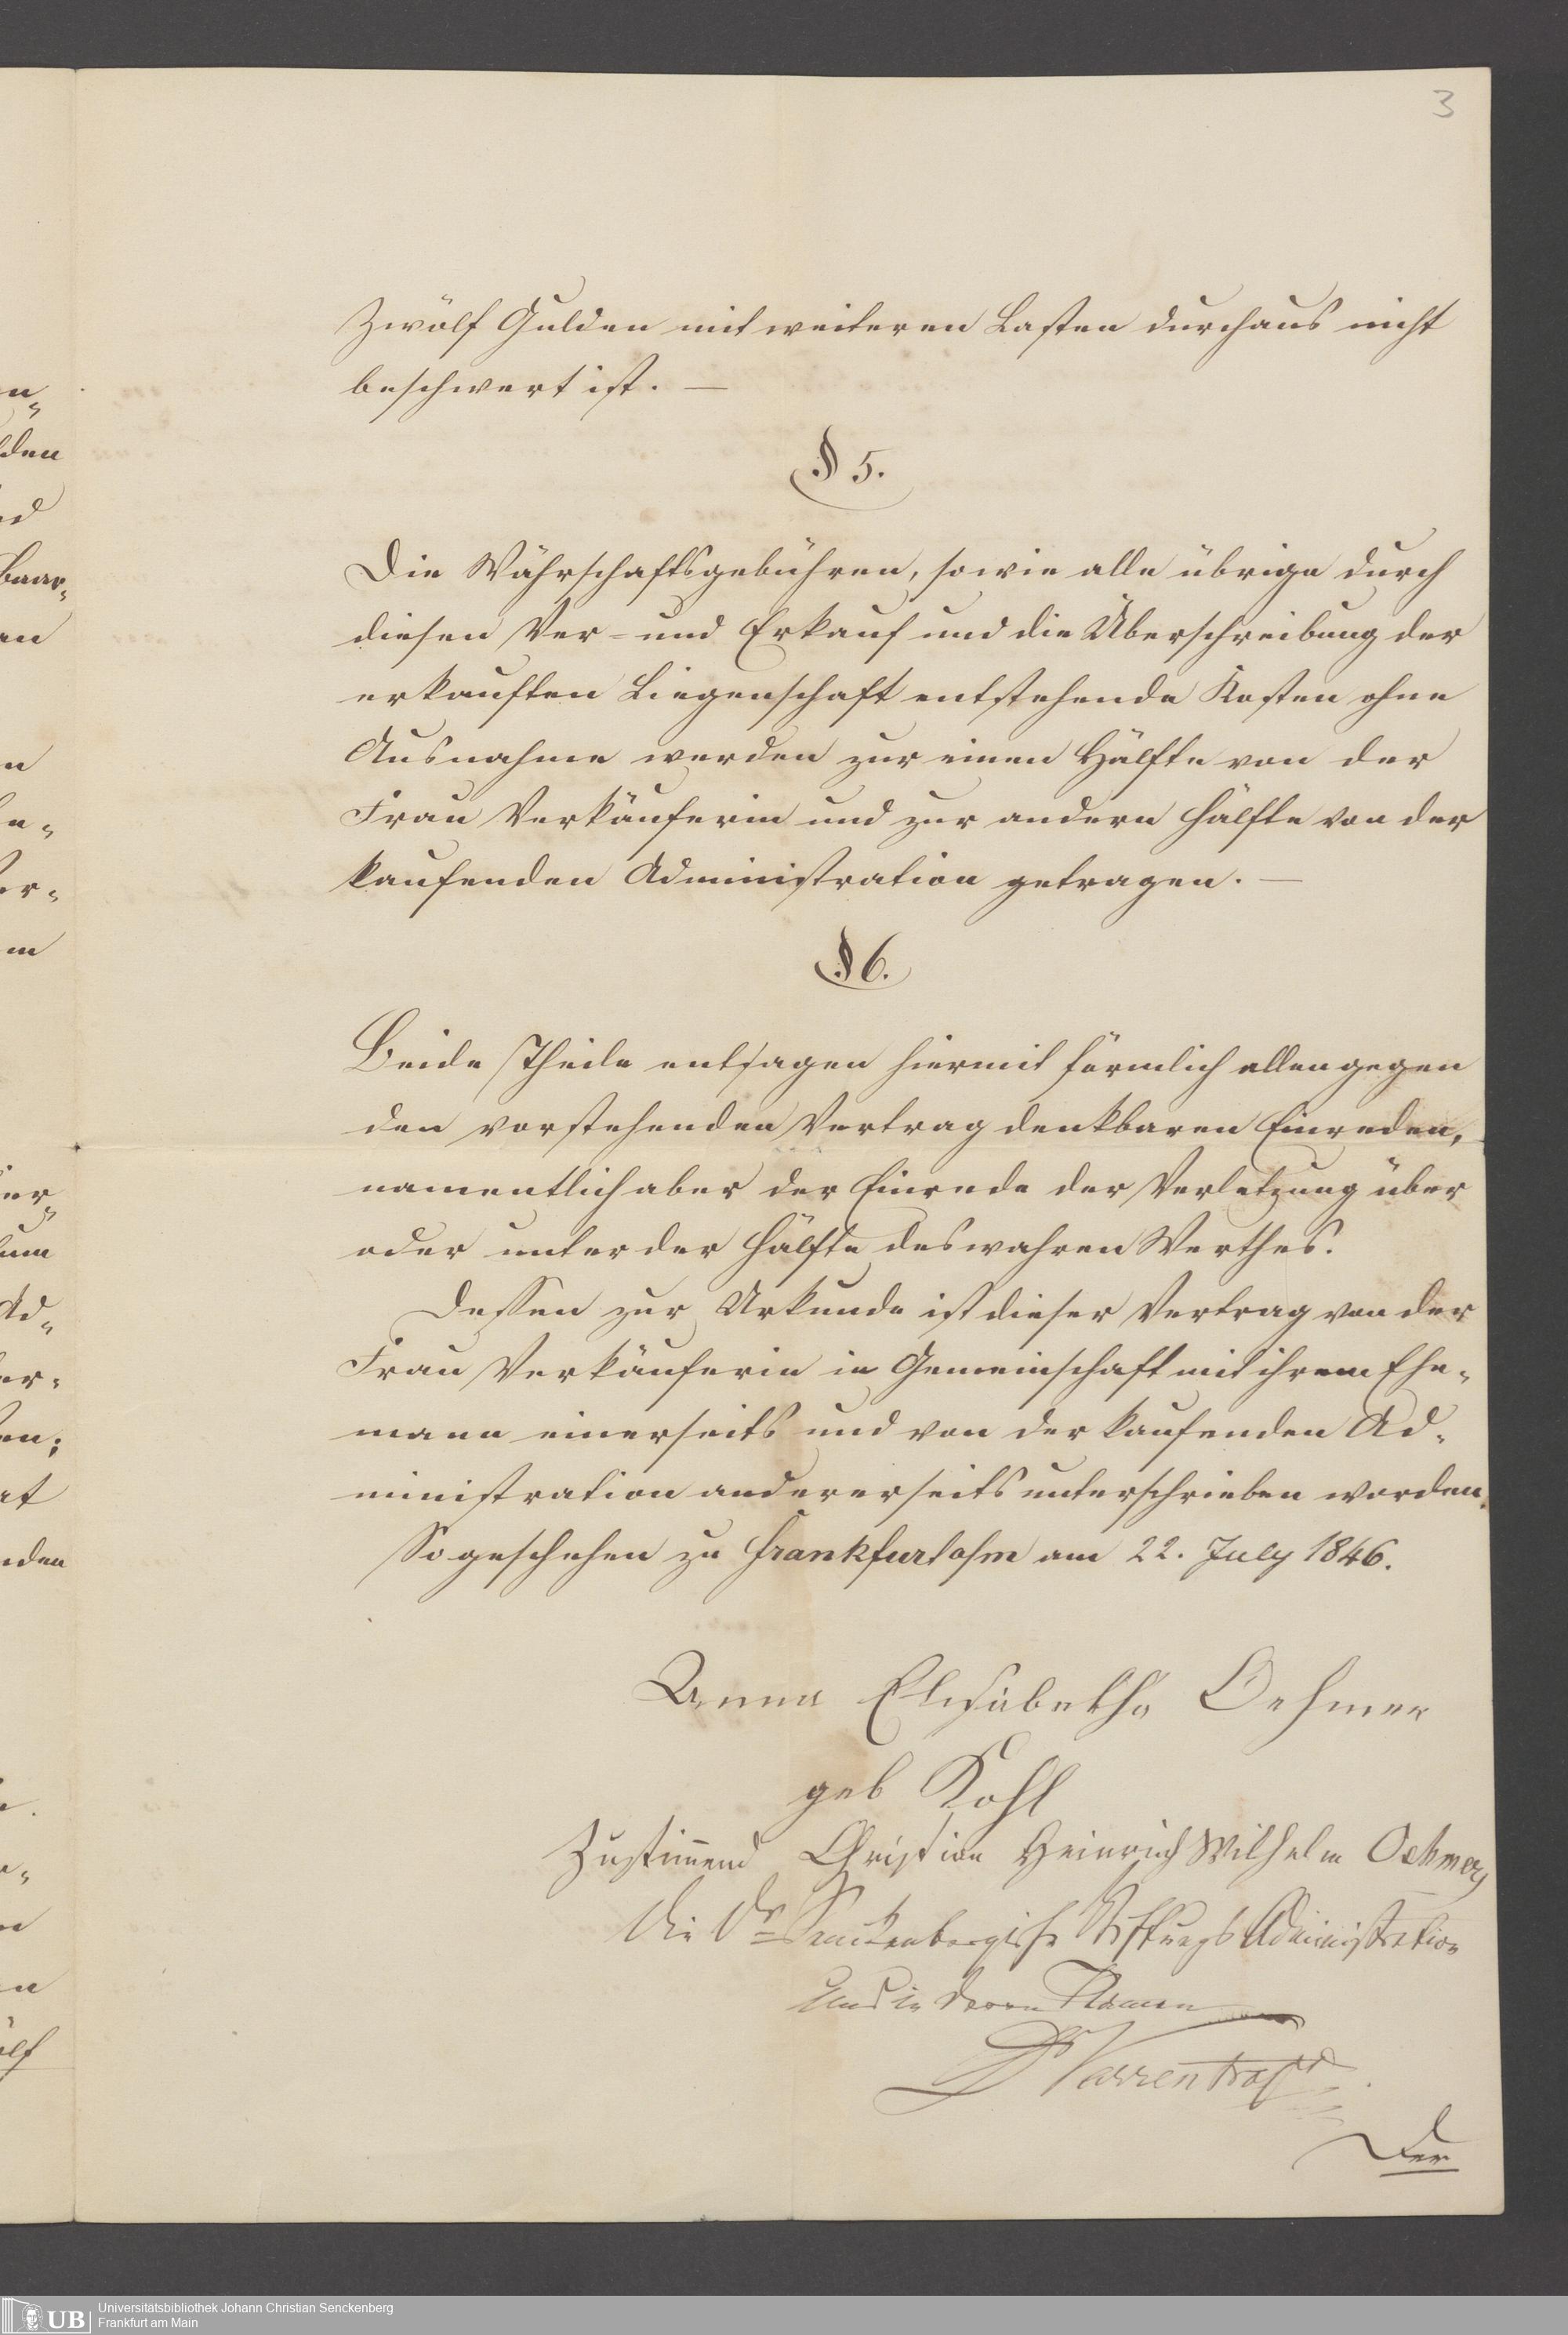 3
Zwölf Gulden mit weiteren Lasten durchaus nicht
beschwert ist. —
§ 5.
Die Währschaftsgebühren, sowie alle übrige durch
diesen Ver- und Erkauf und die Überschreibung der
erkauften Liegenschaft entstehende Kosten ohne
Ausnahme werden zur einen Hälfte von der
Frau Verkäuferin und zur andern Hälfte von der
kaufenden Administration getragen. —
§ 6.
Beide Theile entsagen hiermit förmlich allen gegen
den vorstehenden Vertrag denkbaren Einreden,
namentlich aber der Einrede der Verletzung über
oder unter der Hälfte des wahren Werthes.
Dessen zur Urkunde ist dieser Vertrag von der
Frau Verkäuferin in Gemeinschaft mit ihrem Ehe-
mann einerseits und von der kaufenden Ad-
ministration andererseits unterschrieben worden.
So geschehen zu Frankfurt a/m am 22. July 1846.
Anna Elisabetha Oehmer
geb Kohl
Zustimmend Christian Heinrich Wilhelm Oehmer
Die Dr Senckenbergische Stiftungs Administration
und in deren Namen
Dr Varrentrapp
Der
UB
Universitätsbibliothek Johann Christian Senckenberg
Frankfurt am Main